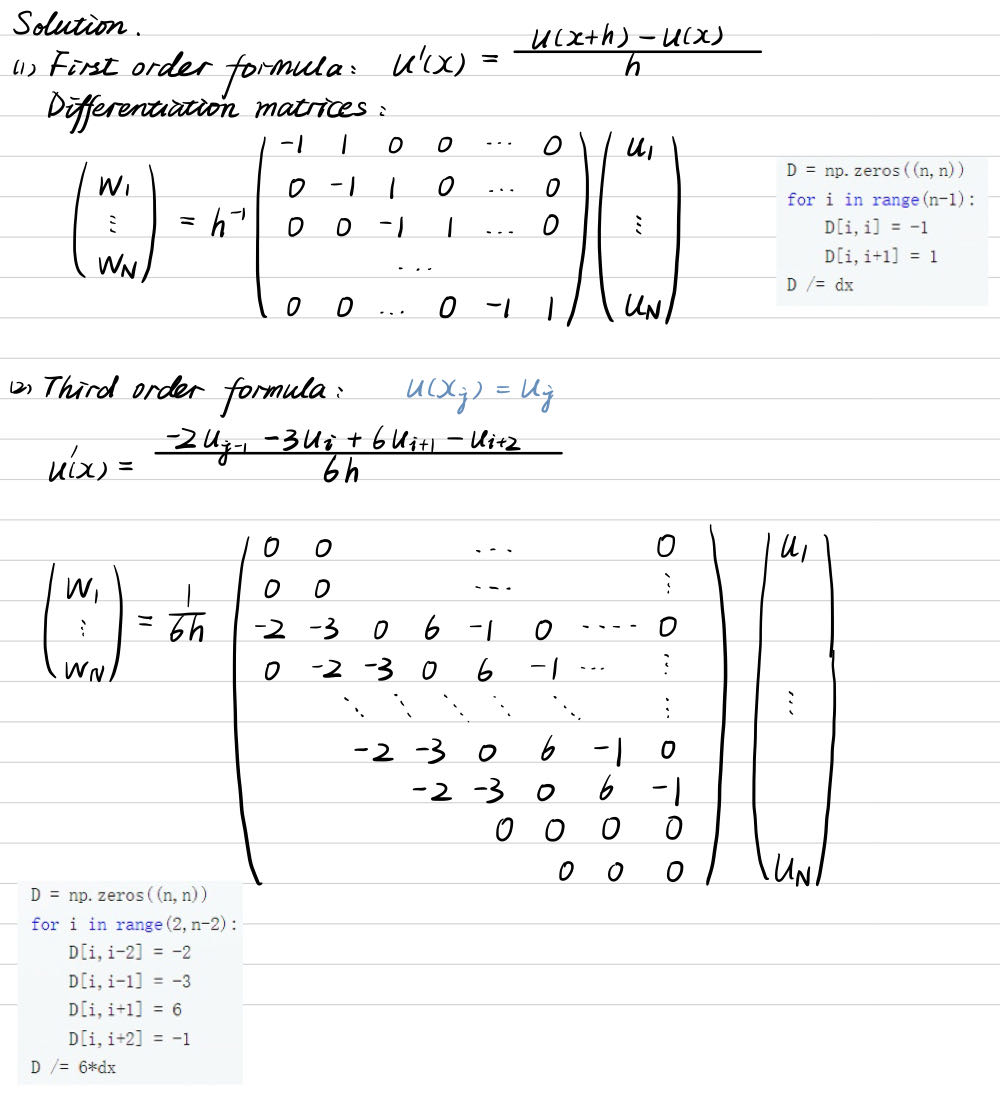 Solution.
(1) First order formula: u'(x) = (u(x+h) - u(x)) / h
Differentiation matrices:
-1 1 0 0 ... 0
0 -1 1 0 ... 0
0 0 -1 1 ... 0
...
0 0 ... 0 -1 1
W₁
⋮
W_N
= h⁻¹
u₁
⋮
u_N
D = np.zeros((n, n))
for i in range(n-1):
    D[i, i] = -1
    D[i, i+1] = 1
D /= dx
(2) Third order formula: u(x_j) = u_j
u'(x) = (-2u_{j-1} - 3u_i + 6u_{i+1} - u_{i+2}) / 6h
W₁
⋮
W_N
= 1/6h
0 0 ... 0
0 0 ... ⋮
-2 -3 0 6 -1 0 ..... 0
0 -2 -3 0 6 -1 ... ⋮
⋱ ⋱ ⋱ ⋱ ⋱ ⋮
-2 -3 0 6 -1 0
-2 -3 0 6 -1
0 0 0 0
0 0 0
u₁
⋮
u_N
D = np.zeros((n, n))
for i in range(2, n-2):
    D[i, i-2] = -2
    D[i, i-1] = -3
    D[i, i+1] = 6
    D[i, i+2] = -1
D /= 6*dx